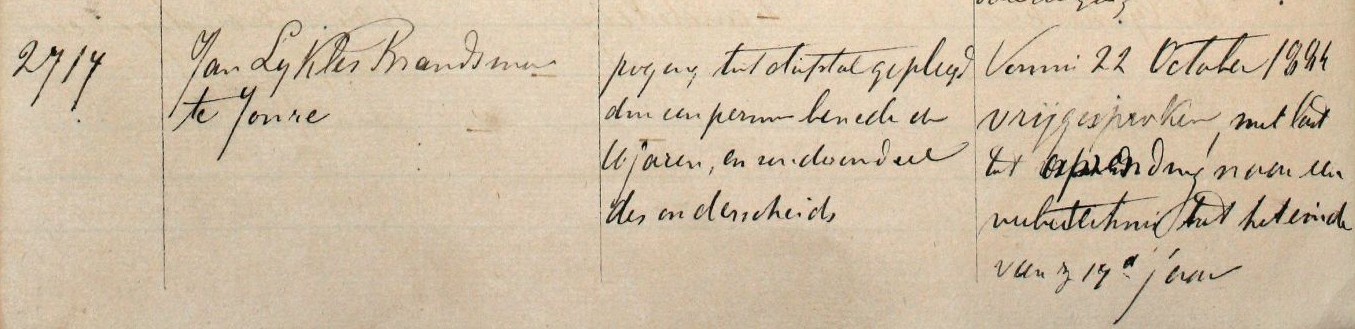 2714
Jan Lykles Brandsma
te Joure
poging tot diefstal gepleegd
door een persoon beneden de
16 jaren, en zonder oordeel
des onderscheids
Vonnis 22 October 1884
vrijgesproken, met last
tot opzending naar een
verbeterhuis tot het einde
van z 17e jaar